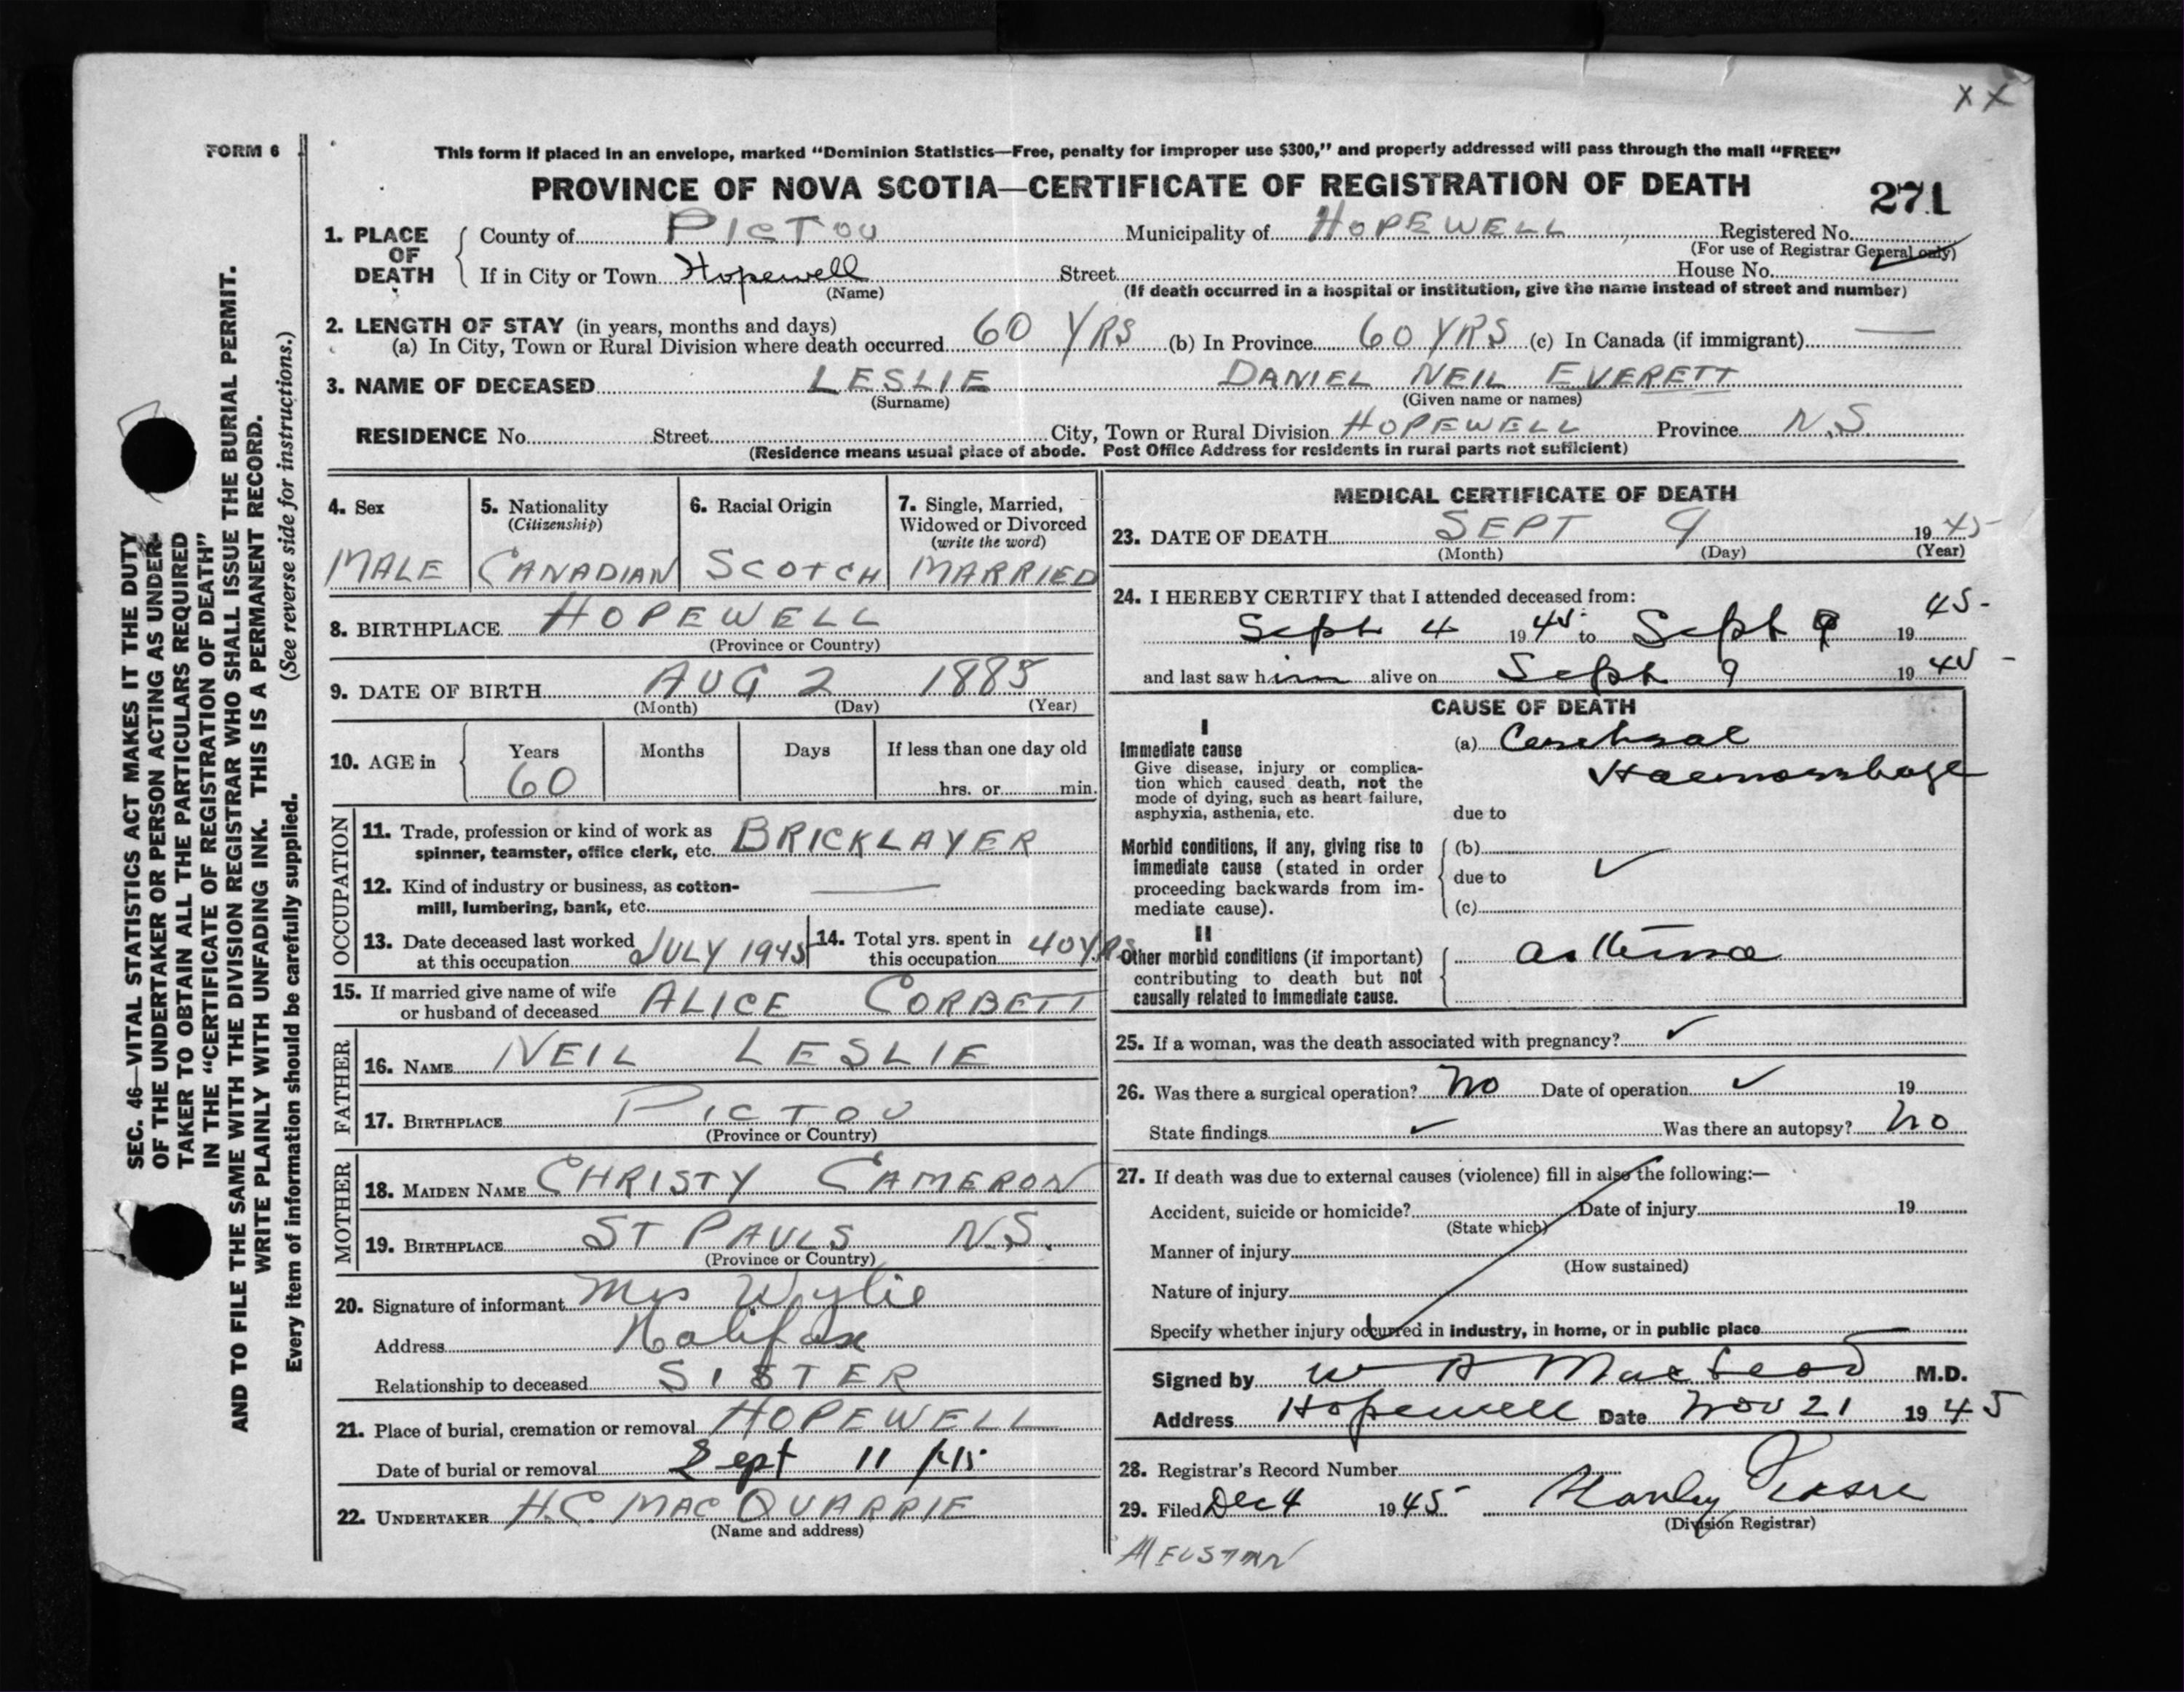 XX
FORM 6
This form if placed in an envelope, marked “Dominion Statistics—Free, penalty for improper use $300,” and properly addressed will pass through the mail “FREE”
PROVINCE OF NOVA SCOTIA—CERTIFICATE OF REGISTRATION OF DEATH
271
1. PLACE OF DEATH { County of PICTOU Municipality of HOPEWELL Registered No.
(For use of Registrar General only)
If in City or Town Hopewell Street House No.
(Name) (If death occurred in a hospital or institution, give the name instead of street and number)
2. LENGTH OF STAY (in years, months and days)
(a) In City, Town or Rural Division where death occurred 60 YRS (b) In Province 60 YRS (c) In Canada (if immigrant) —
3. NAME OF DECEASED LESLIE DANIEL NEIL EVERETT
(Surname) (Given name or names)
RESIDENCE No. Street City, Town or Rural Division HOPEWELL Province N.S.
(Residence means usual place of abode. Post Office Address for residents in rural parts not sufficient)
4. Sex
MALE
5. Nationality
(Citizenship)
CANADIAN
6. Racial Origin
SCOTCH
7. Single, Married,
Widowed or Divorced
(write the word)
MARRIED
8. BIRTHPLACE HOPEWELL
(Province or Country)
9. DATE OF BIRTH AUG 2 1885
(Month) (Day) (Year)
10. AGE in { Years Months Days If less than one day old
60 hrs. or min.
OCCUPATION
11. Trade, profession or kind of work as
spinner, teamster, office clerk, etc. BRICKLAYER
12. Kind of industry or business, as cotton-
mill, lumbering, bank, etc. —
13. Date deceased last worked
at this occupation JULY 1945
14. Total yrs. spent in
this occupation 40 YRS
15. If married give name of wife
or husband of deceased ALICE CORBETT
FATHER
16. NAME NEIL LESLIE
17. BIRTHPLACE PICTOU
(Province or Country)
MOTHER
18. MAIDEN NAME CHRISTY CAMERON
19. BIRTHPLACE ST PAULS N.S.
(Province or Country)
20. Signature of informant Mrs Wylie
Address Halifax
Relationship to deceased SISTER
21. Place of burial, cremation or removal HOPEWELL
Date of burial or removal Sept 11 /45
22. UNDERTAKER H.C. MAC QUARRIE
(Name and address)
MEDICAL CERTIFICATE OF DEATH
23. DATE OF DEATH SEPT 9 1945
(Month) (Day) (Year)
24. I HEREBY CERTIFY that I attended deceased from:
Sept 4 1945 to Sept 9 1945
and last saw him alive on Sept 9 1945
CAUSE OF DEATH
I
Immediate cause
Give disease, injury or complica-
tion which caused death, not the
mode of dying, such as heart failure,
asphyxia, asthenia, etc.
(a) Cerebral
Haemorrhage
due to
Morbid conditions, if any, giving rise to
immediate cause (stated in order
proceeding backwards from im-
mediate cause).
(b)
due to ✓
(c)
II
Other morbid conditions (if important)
contributing to death but not
causally related to immediate cause.
asthma
25. If a woman, was the death associated with pregnancy? ✓
26. Was there a surgical operation? No Date of operation ✓ 19
State findings ✓ Was there an autopsy? No
27. If death was due to external causes (violence) fill in also the following:—
Accident, suicide or homicide? Date of injury 19
(State which)
Manner of injury
(How sustained)
Nature of injury
Specify whether injury occurred in industry, in home, or in public place
Signed by W A MacLeod M.D.
Address Hopewell Date Nov 21 1945
28. Registrar's Record Number
29. Filed Dec 4 1945 Stanley
(Division Registrar)
SEC. 46—VITAL STATISTICS ACT MAKES IT THE DUTY
OF THE UNDERTAKER OR PERSON ACTING AS UNDER-
TAKER TO OBTAIN ALL THE PARTICULARS REQUIRED
IN THE “CERTIFICATE OF REGISTRATION OF DEATH”
AND TO FILE THE SAME WITH THE DIVISION REGISTRAR WHO SHALL ISSUE THE BURIAL PERMIT.
WRITE PLAINLY WITH UNFADING INK. THIS IS A PERMANENT RECORD.
Every item of information should be carefully supplied. (See reverse side for instructions.)